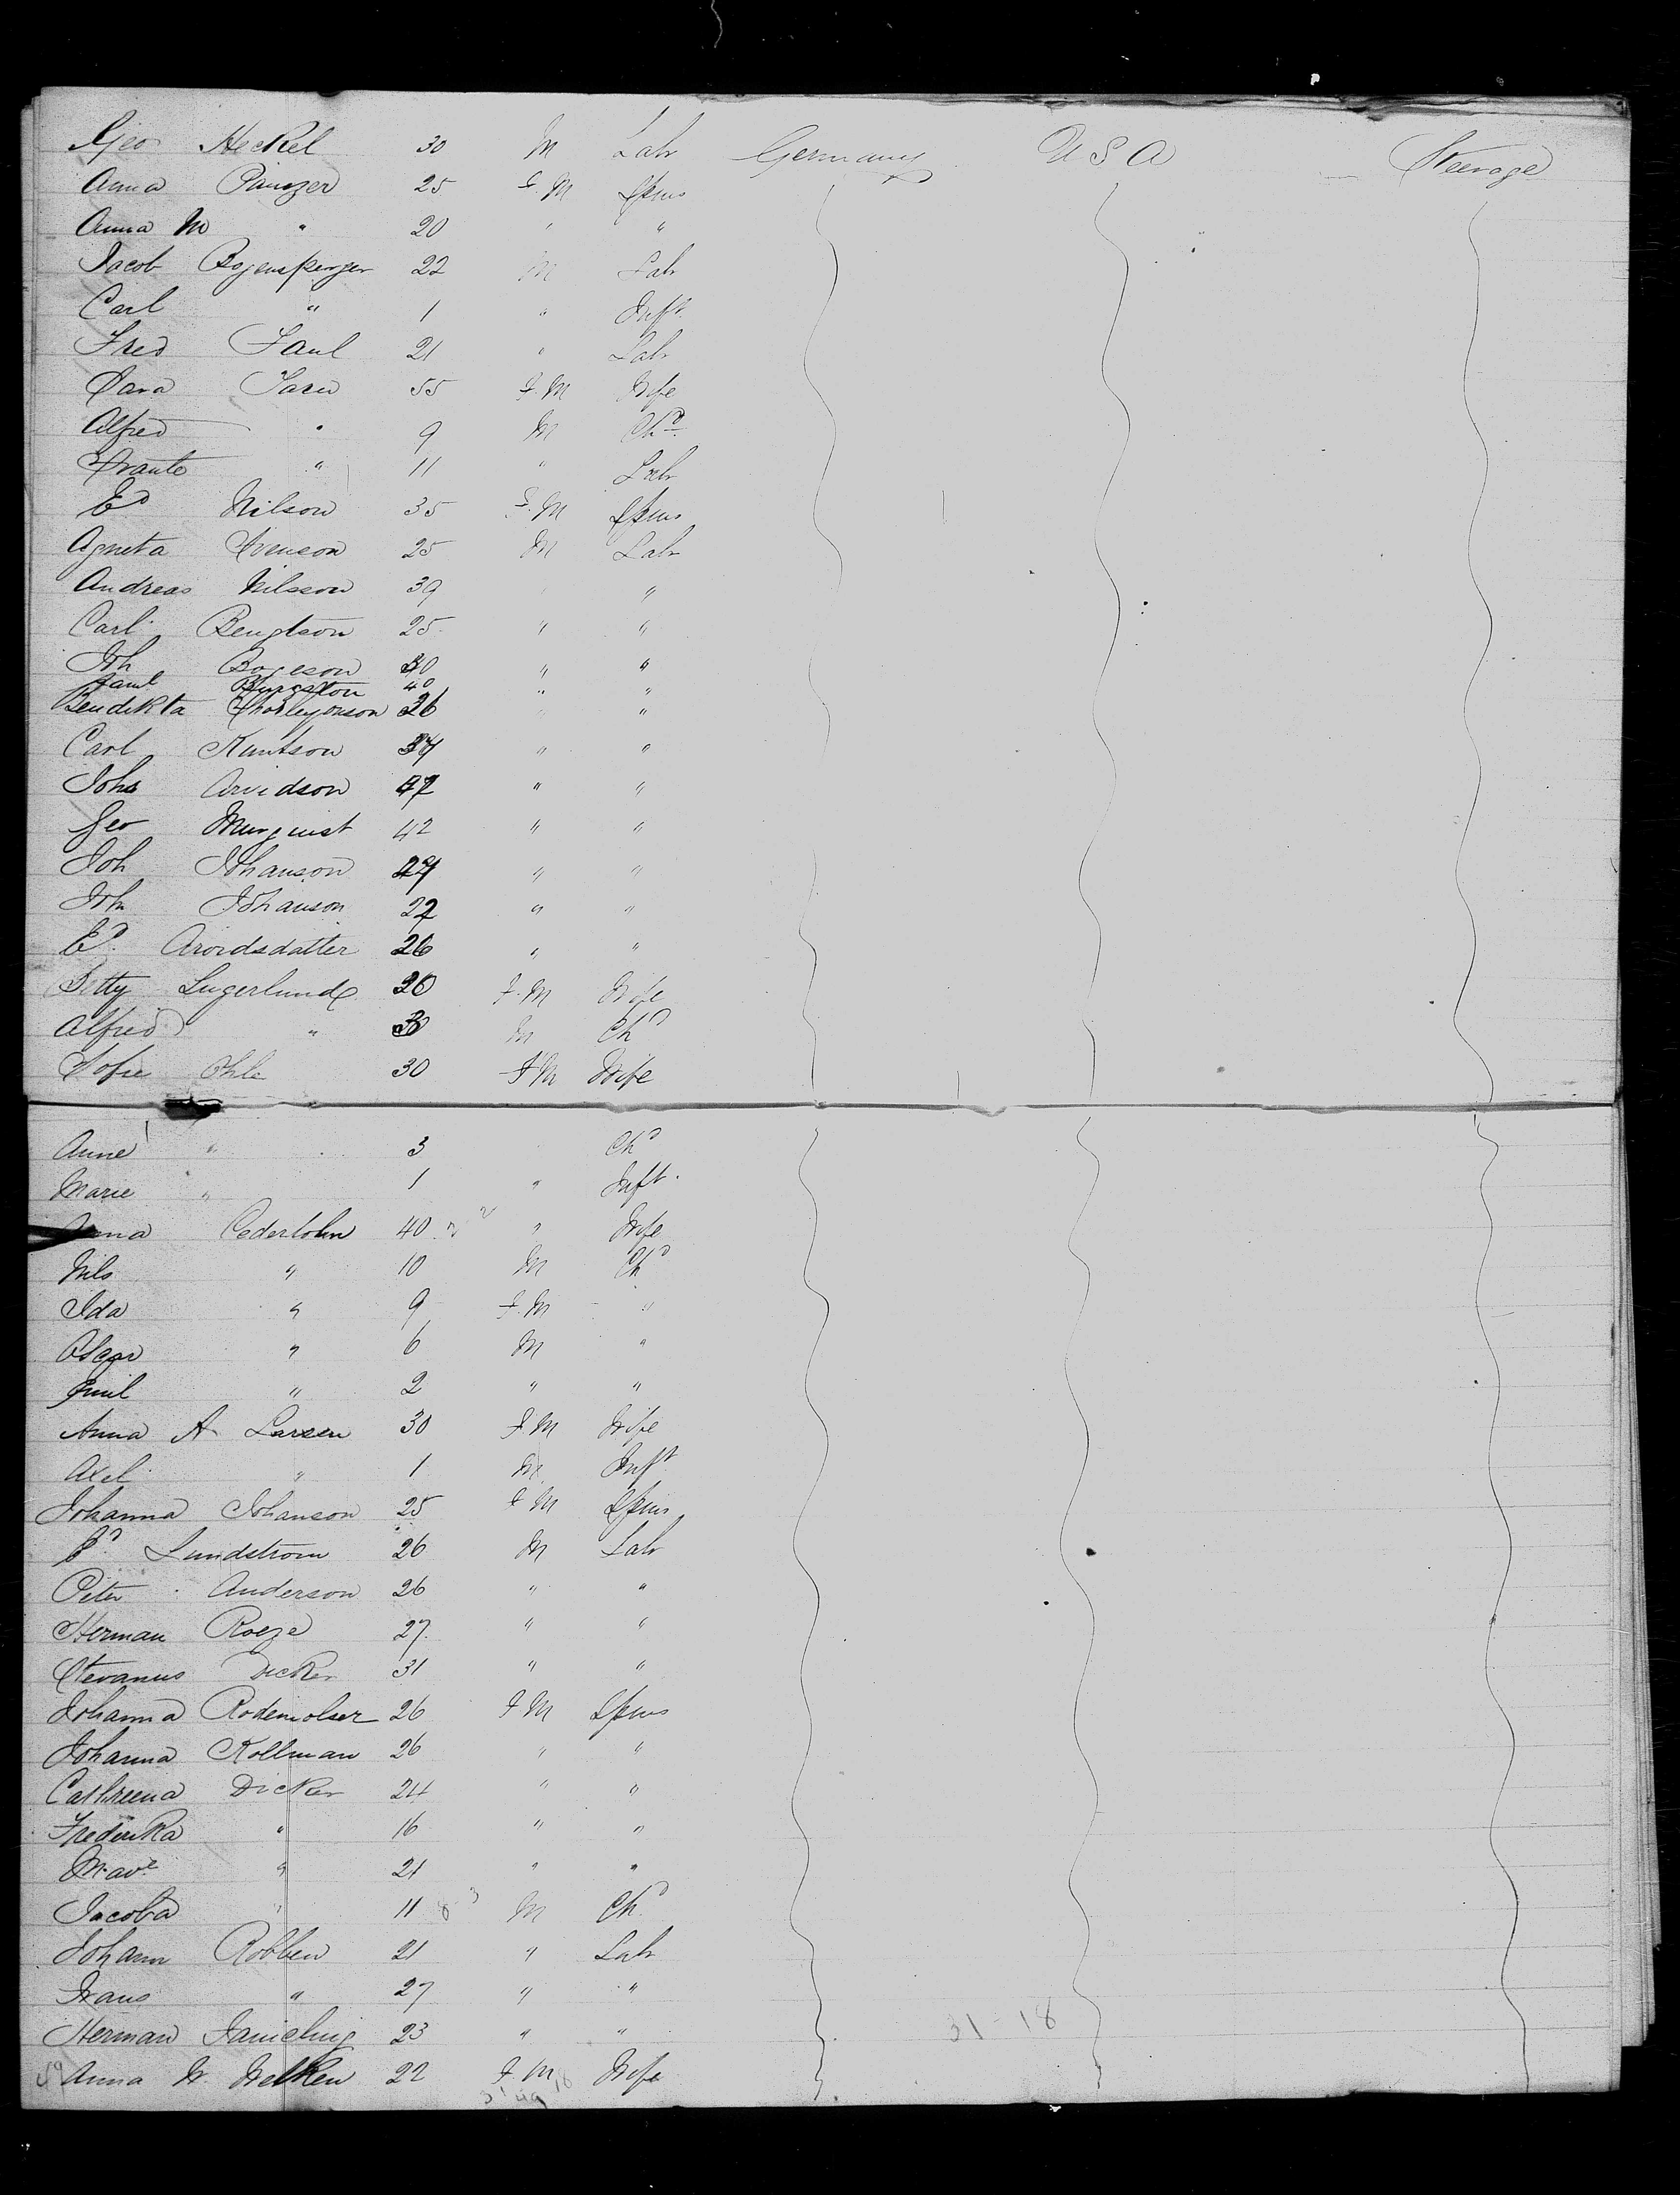 Geo Heckel 30 M Labr Germany U S A Steerage
Anna Panzer 25 F. M Spins
Anna M " 20 " "
Jacob Bogensperger 22 M Labr
Carl " 1 " Inft
Fred Faul 21 " Labr
55 F. M Wife
Alfred " 9 M Chd
" 11 " Labr
Ed Nilson 35 F. M Spins
Agneta Svenson 25 M Labr
Andreas Nilsson 39 " "
Carl Bengtson 25 " "
Joh Boreson " "
40 " "
Bendikta 26 " "
Carl Kuntson " "
Johs Arvidson " "
Geo 42 " "
Joh Johanson " "
Joh Johanson 22 " "
Ed. Arvidsdatter 26 " "
Betty Lugerlund F. M Wife
Alfred " 3 M Chd
Sofie Ohls 30 F M Wife
Anne " 3 Chd
Marie " 1 " Inft.
Cederlohn 40 " Wife
Nils " 10 M Chd
Ida " 9 F. M "
Oscar " 6 M "
Emil " 2 " "
Anna A Larsen 30 F M Wife
Axel " 1 M Inft
Johanna Johanson 25 F M Spins
Lundstrom 26 M Labr
Peter Anderson 26 " "
Herman Roeze 27 " "
Stevanus Dicker 31 " "
Johanna Rodemolser 26 F M Spins
Johanna Kollman 26 " "
Cathreena Dicker 24 " "
Frederika " 16 " "
" 21 " "
Jacoba " 11 M Chd
Johann Robben 21 " Labr
Frans " 27 " "
Herman 23 " "
31-18
Anna W. Welken 22 F M Wife